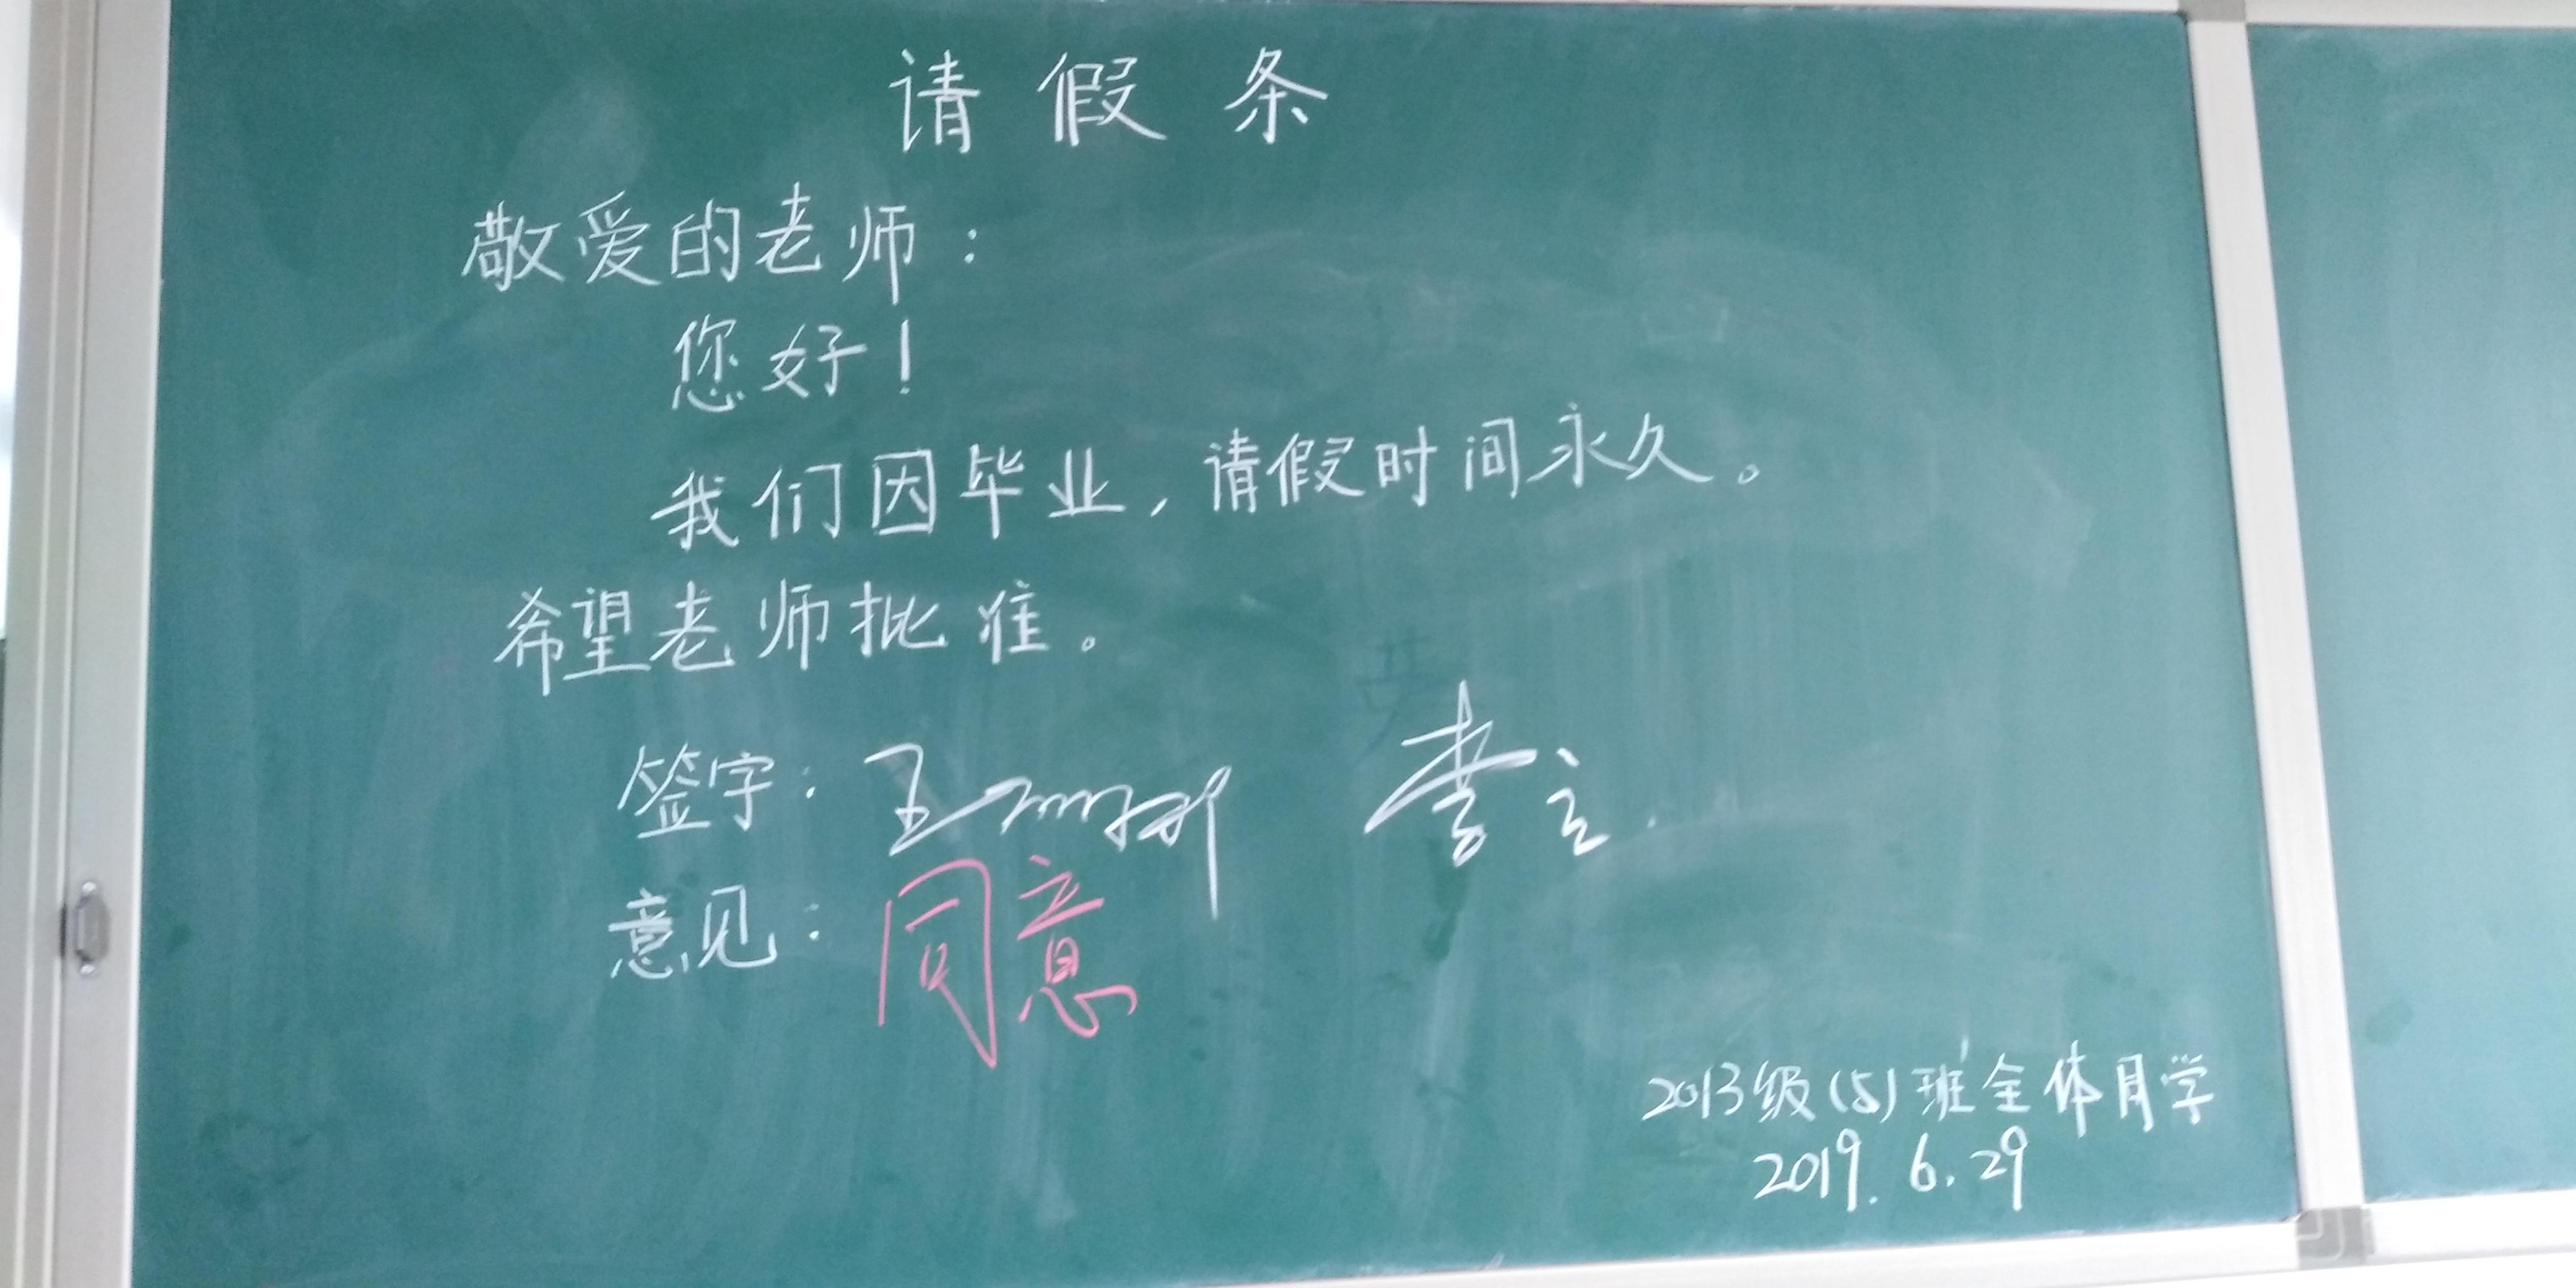 请假条
敬爱的老师：
您好！
我们因毕业，请假时间永久。
希望老师批准。
签字：王
意见：同意
2013级(5)班全体同学
2019.6.29